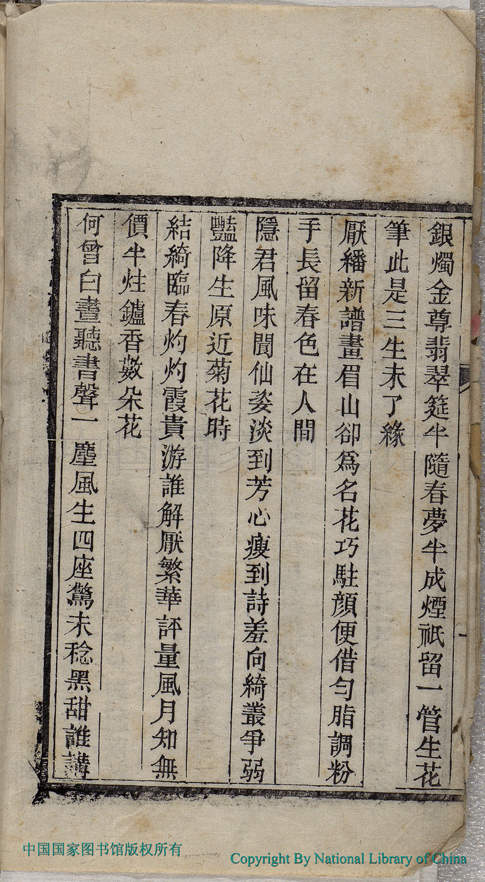 銀燭金尊翡翠筵半隨春夢半成煙祇留一管生花
筆此是三生未了緣
厭繙新譜畫眉山卻為名花巧駐顏便借勻脂調粉
手長留春色在人間
隱君風味聞仙姿淡到芳心瘦到詩羞向綺叢爭弱
豔降生原近菊花時
結綺臨春灼灼霞貴游誰解厭繁華評量風月知無
價半炷鑪香數朵花
何曾白晝聽書聲一麈風生四座驚未稔黑甜誰講
中国国家图书馆版权所有
Copyright By National Library of China